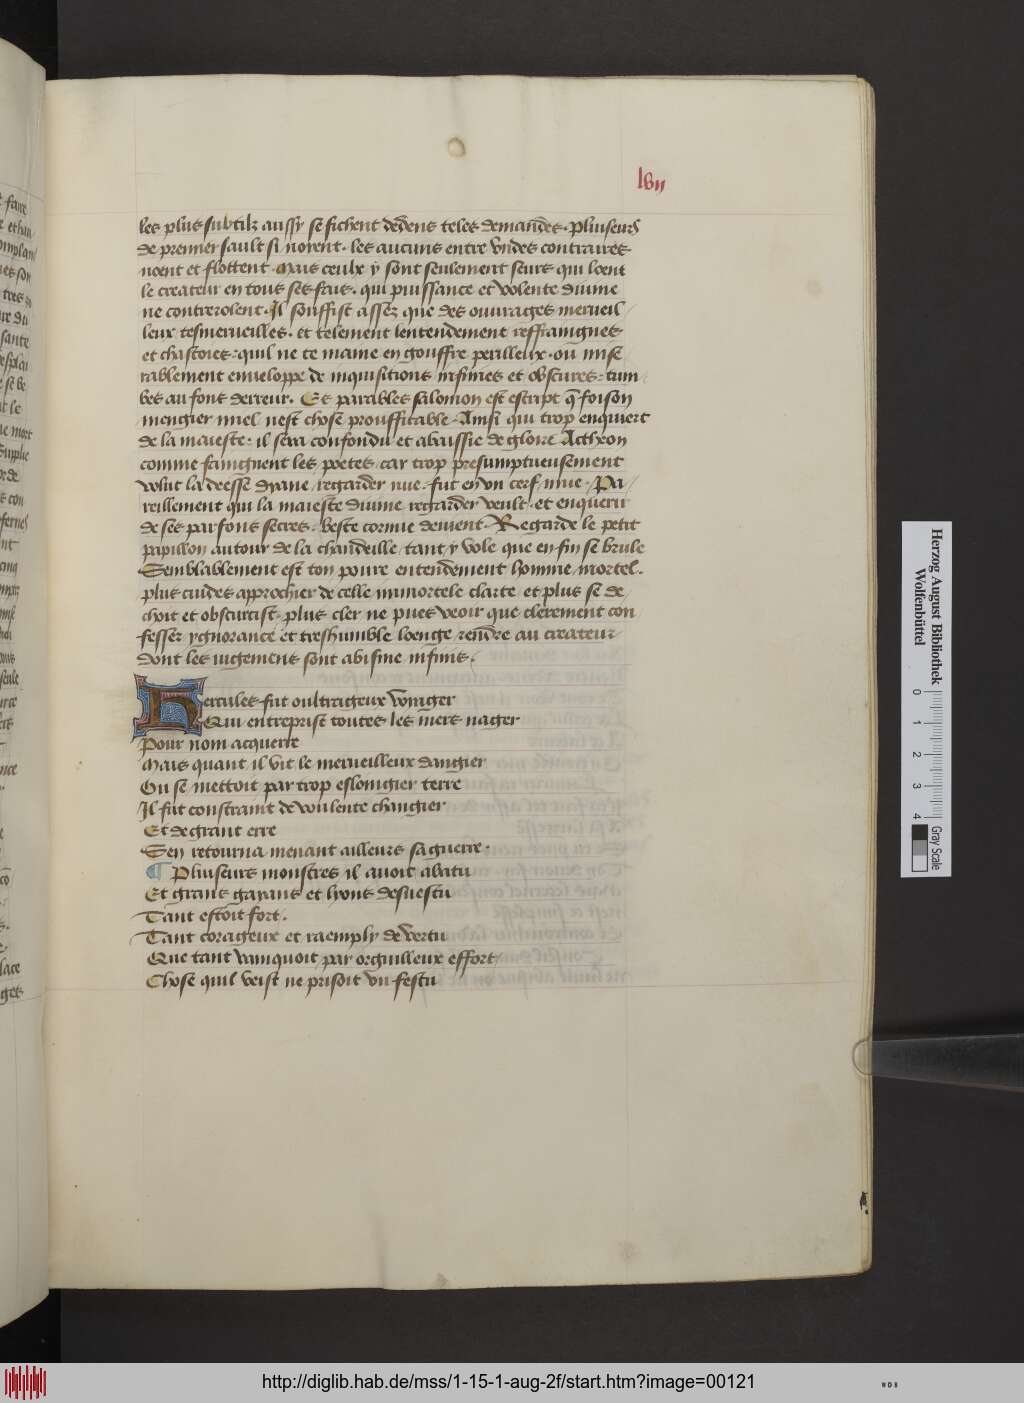 lvij
les plus subtilz aussy se fichent dedens teles demandes. Pluiseurs
de premier sault si noient. les aucuns entre undes contraires
noent et flottent. Mais ceulx y sont seulement seurs qui loent
le createur en tous ses fais. qui puissance et volente divine
ne contrerolent. Il souffist assez que des ouvrages merveil
leux tesmerveilles. et telement lentendement reffraingnes
et chastoies. quil ne te maine en gouffre perilleux. ou mise
rablement enveloppe de inquisitions infinies et obscures. tum
bes au fons derreur. Es parables salomon est escript q̄ foison
mengier miel nest chose prouffitable. Ainsi qui trop enquiert
de la maieste. il sera confondu et abaissie de gloire Actheon
comme faingnent les poetes. car trop presumptueusement
volut la deesse dyane regarder nue. fut en un cerf mue. Pa
reillement qui la maieste divine regarder veult. et enquerir
de ses parfons secres. beste cornue devient. Regarde le petit
papillon autour de la chandeille tant y vole que en fin se brule
Semblablement est ton povre entendement homme mortel.
plus cuides approchier de celle immortele clarte. et plus se de
choit et obscurcist. plus cler ne pues veoir que clerement con
fesser ygnorance et treshumble loenge rendre au createur
dont les iugement sont abisme infinis.
Hercules fut oultrageux voiagier
Qui entreprist toutes les mers nager
Pour nom acquerre
Mais quant il vit le merveilleux dangier
Ou se mettoit par trop eslongier terre
Il fut constraint de voulente changier
Et de grant erre
Sen retourna menant ailleurs sa guerre.
¶ Pluiseurs monstres il avoit abatu
Et grans gayans et lyons desvestu
Tant estoit fort.
Tant corageux et raemply de vertu
Que tant vainquoit par orguilleux effort
Chose quil veist ne prisoit un festu
Herzog August Bibliothek
Wolfenbüttel
0 1 2 3 4
Gray Scale
http://diglib.hab.de/mss/1-15-1-aug-2f/start.htm?image=00121
WDB